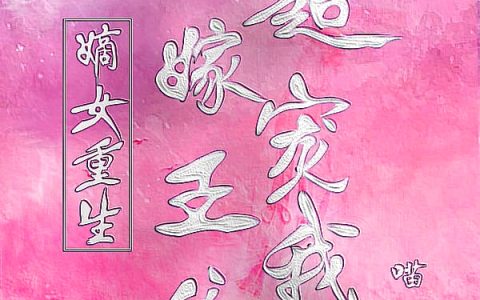 嫡女重生
嫁王
宠我
喵